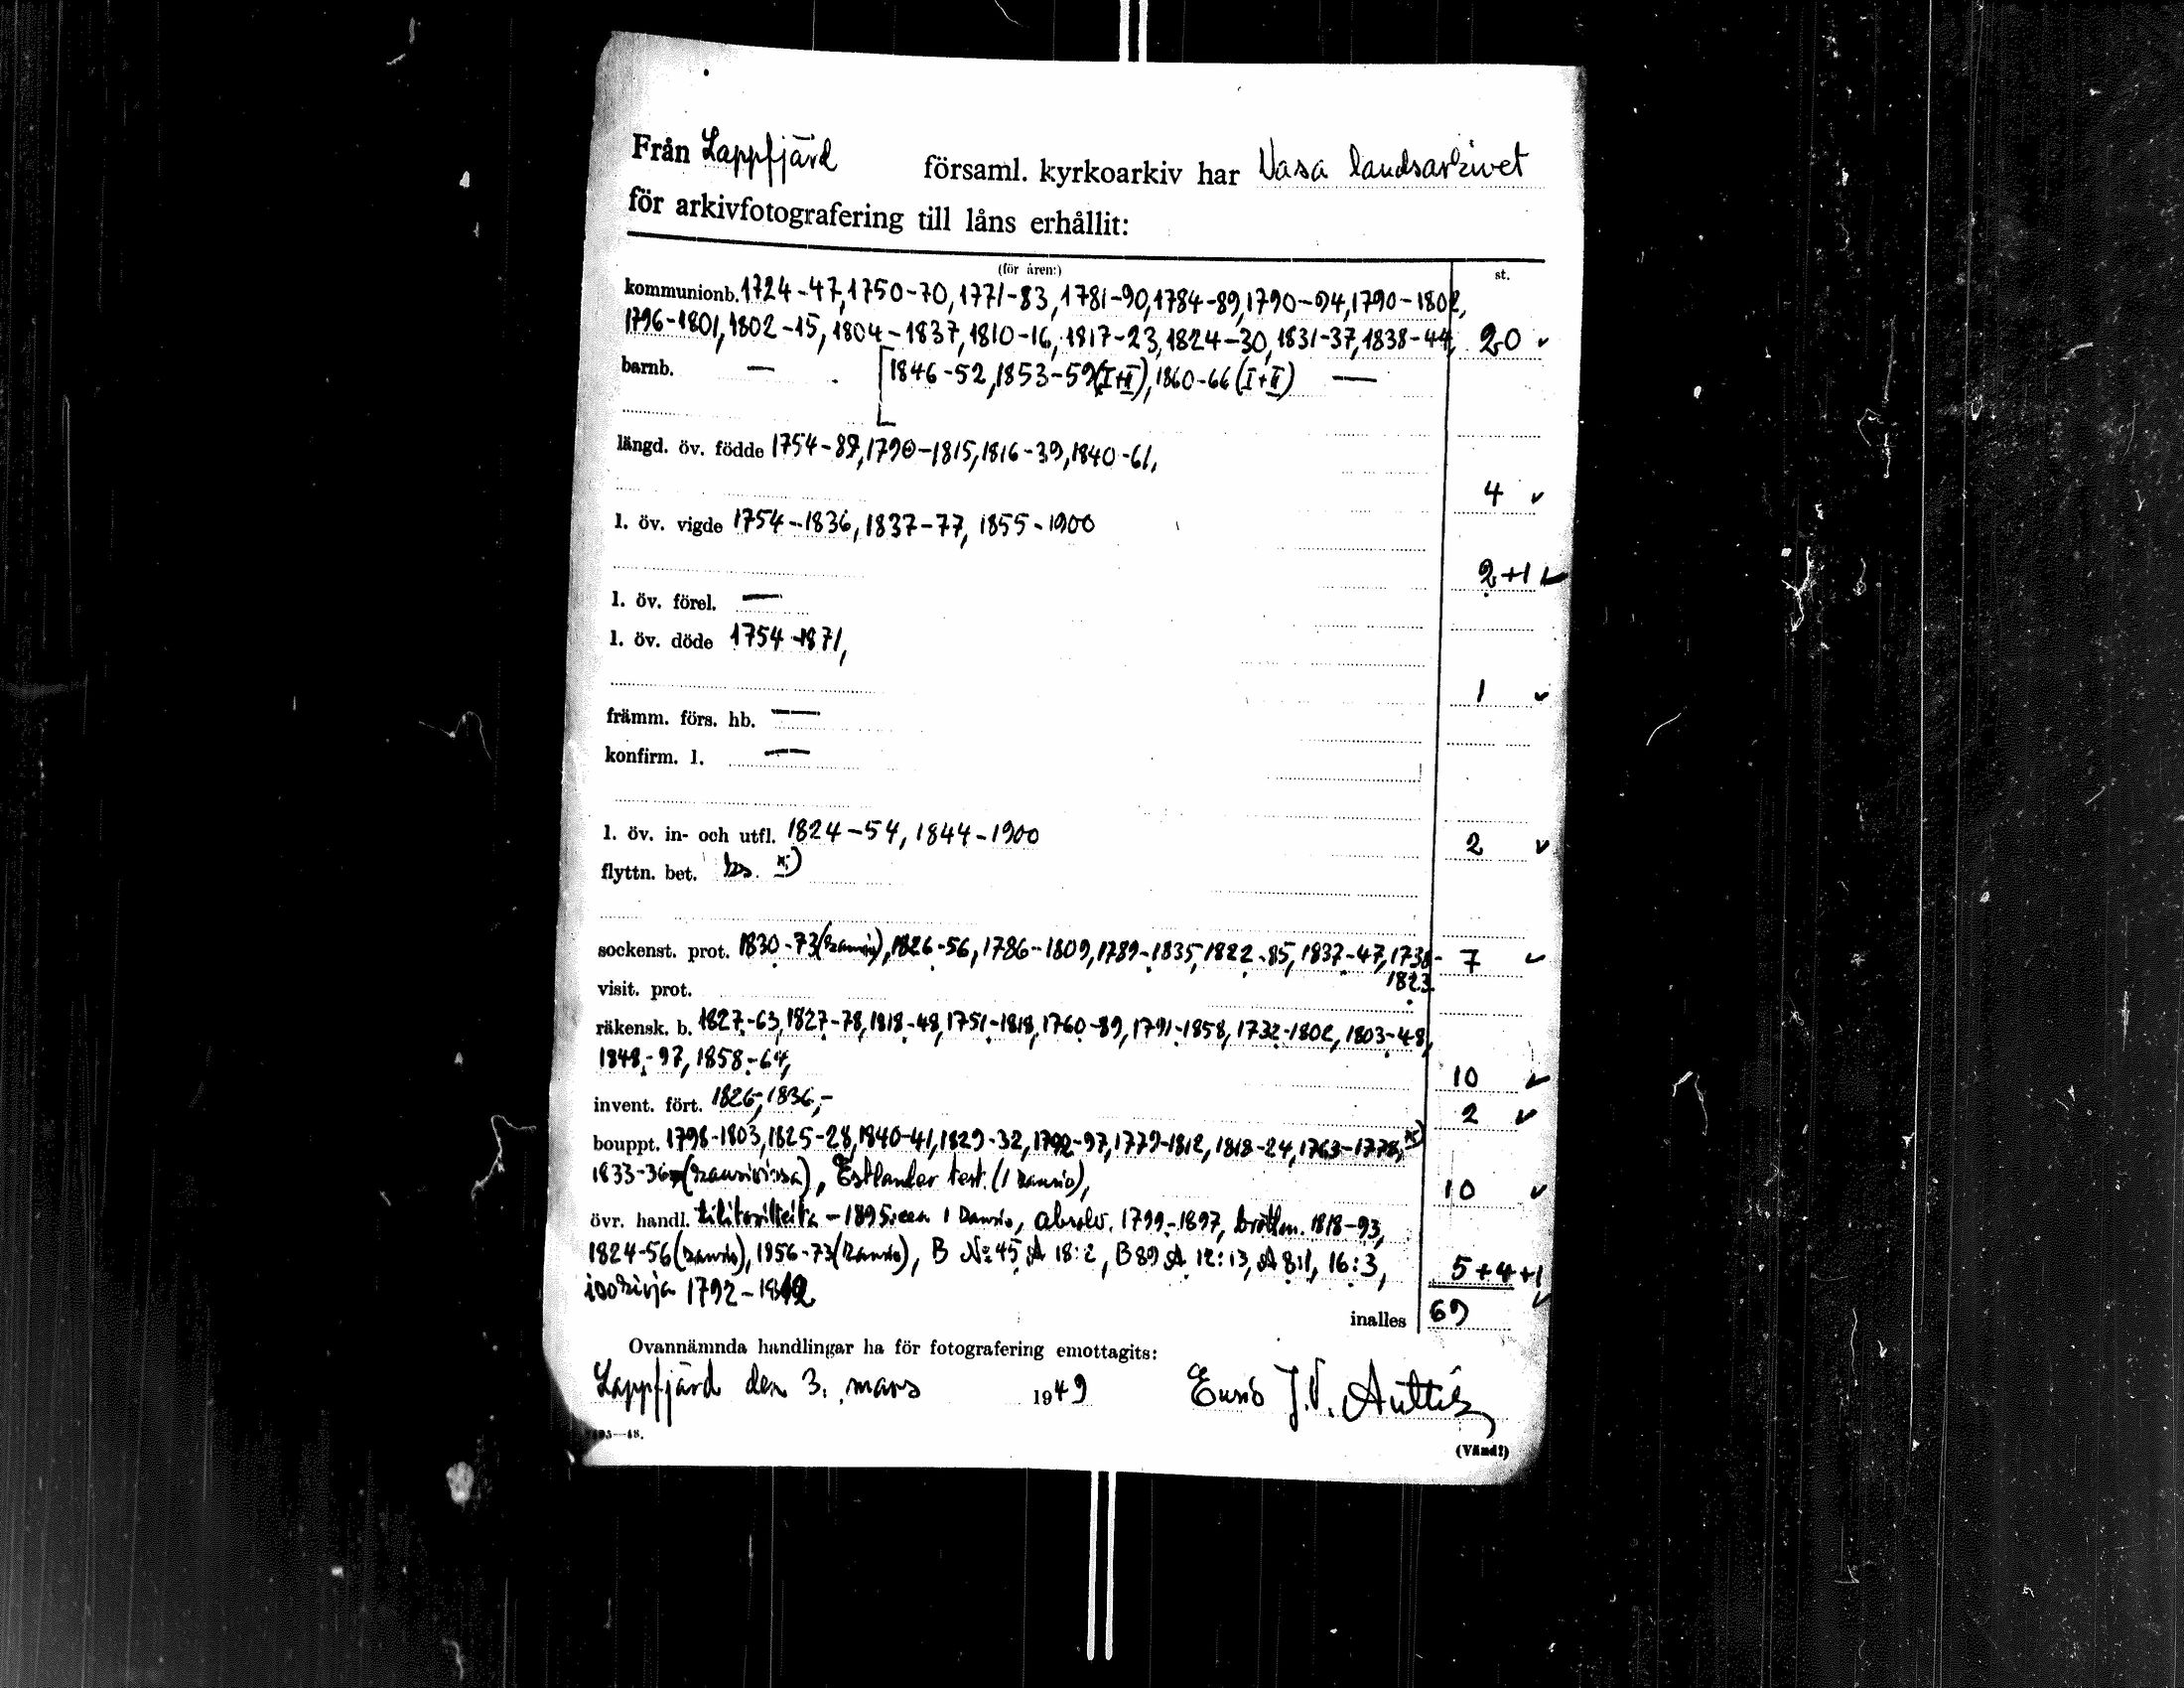 Från Lappfjärd församl. kyrkoarkiv har Vasa landsarkivet
för arkivfotografering till låns erhållit:
(för åren:) st.
kommunionb. 1724-47, 1750-70, 1771-83, 1781-90, 1784-89, 1790-94, 1790-1802,
1796-1801, 1802-15, 1804-1837, 1810-16, 1817-23, 1824-30, 1831-37, 1838-44, 20 ✓
barnb. — [1846-52, 1853-59(I+II), 1860-66 (I+II) —
längd. öv. födde 1754-89, 1790-1815, 1816-39, 1840-61,
4 ✓
l. öv. vigde 1754-1836, 1837-77, 1855-1900
2+1 ✓
l. öv. förel. —
l. öv. döde 1754-1871,
1 ✓
främm. förs. hb. —
konfirm. l. —
l. öv. in- och utfl. 1824-54, 1844-1900 2 ✓
flyttn. bet. ks. x)
sockenst. prot. 1830-73 (kansio), 1826-56, 1786-1809, 1789-1835, 1822-85, 1837-47, 1738- 7 ✓
1823
visit. prot.
räkensk. b. 1827-63, 1827-78, 1818-48, 1751-1818, 1760-89, 1791-1858, 1732-1802, 1803-48,
1848-97, 1858-64, 10 ✓
invent. fört. 1826-, 1836,- 2 ✓
bouppt. 1798-1803, 1825-28, 1840-41, 1829-32, 1792-97, 1779-1812, 1818-24, 1763-1778, x)
1833-36 (kansioissa), Estlander test. (1 kansio), 10 ✓
övr. handl. -1895 1 kansio, absolv. 1799-1897, 1818-93,
1824-56 (kansio), 1856-73 (kansio), B No 45 A 18:2, B 89 A 12:13, A 8:1, 16:3, 5+4+1
isokirja 1792-1812 ✓
inalles 69
Ovannämnda handlingar ha för fotografering emottagits:
Lappfjärd den 3. mars 1949 Eunio J.V. Anttila
(Vänd!)